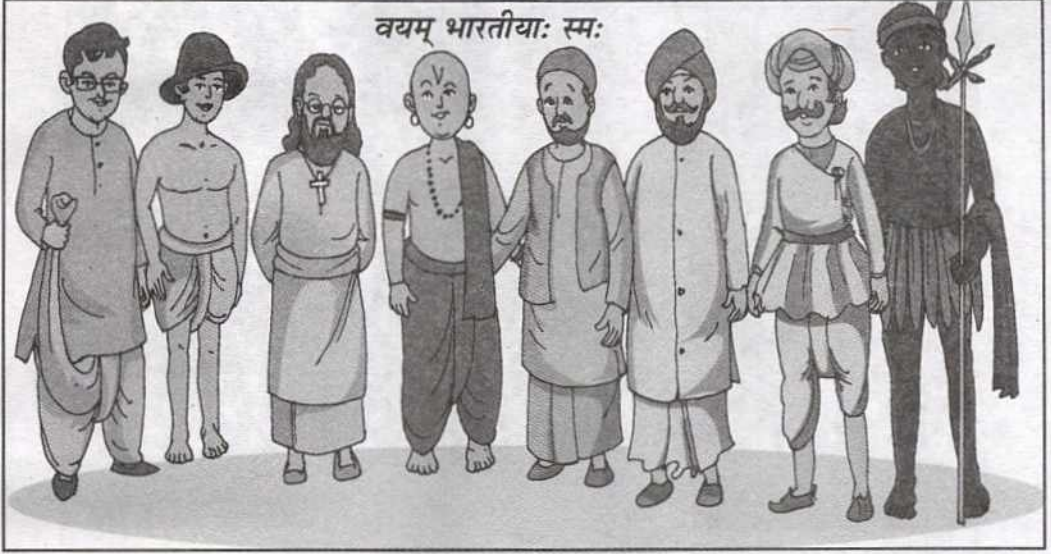 वयम् भारतीयाः स्मः